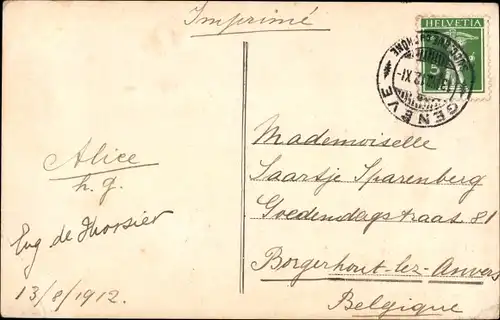 Imprimé
HELVETIA
5
GENEVE
Mademoiselle
Saartje Sparenberg
Goedendagstraat 81
Borgerhout-lez-Anvers
Belgique
Alice
h. g.
Eug de
13/8/1912.